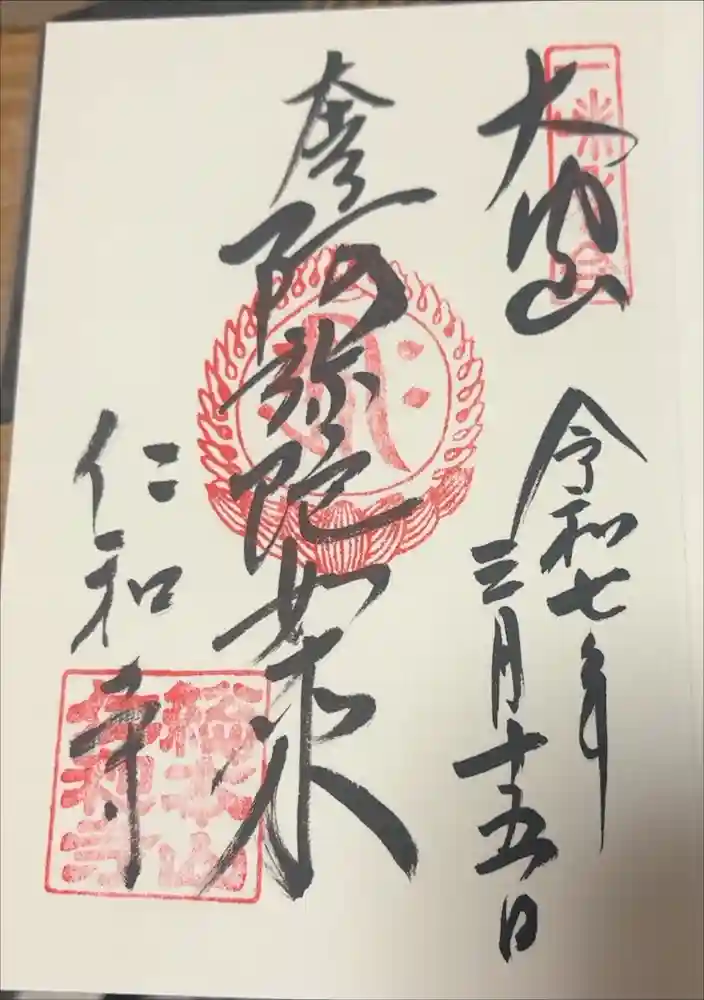 大内山
令和七年
三月十五日
阿弥陀如来
仁和寺
総本山
仁和寺